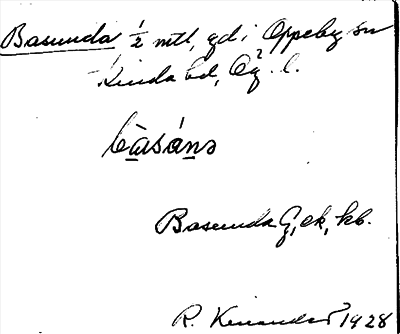 Basunda ½ mtl, gd i Oppeby sn
Kinda hd, Ög. l.
Basunda G, ek, kb.
R. Kinander 1928